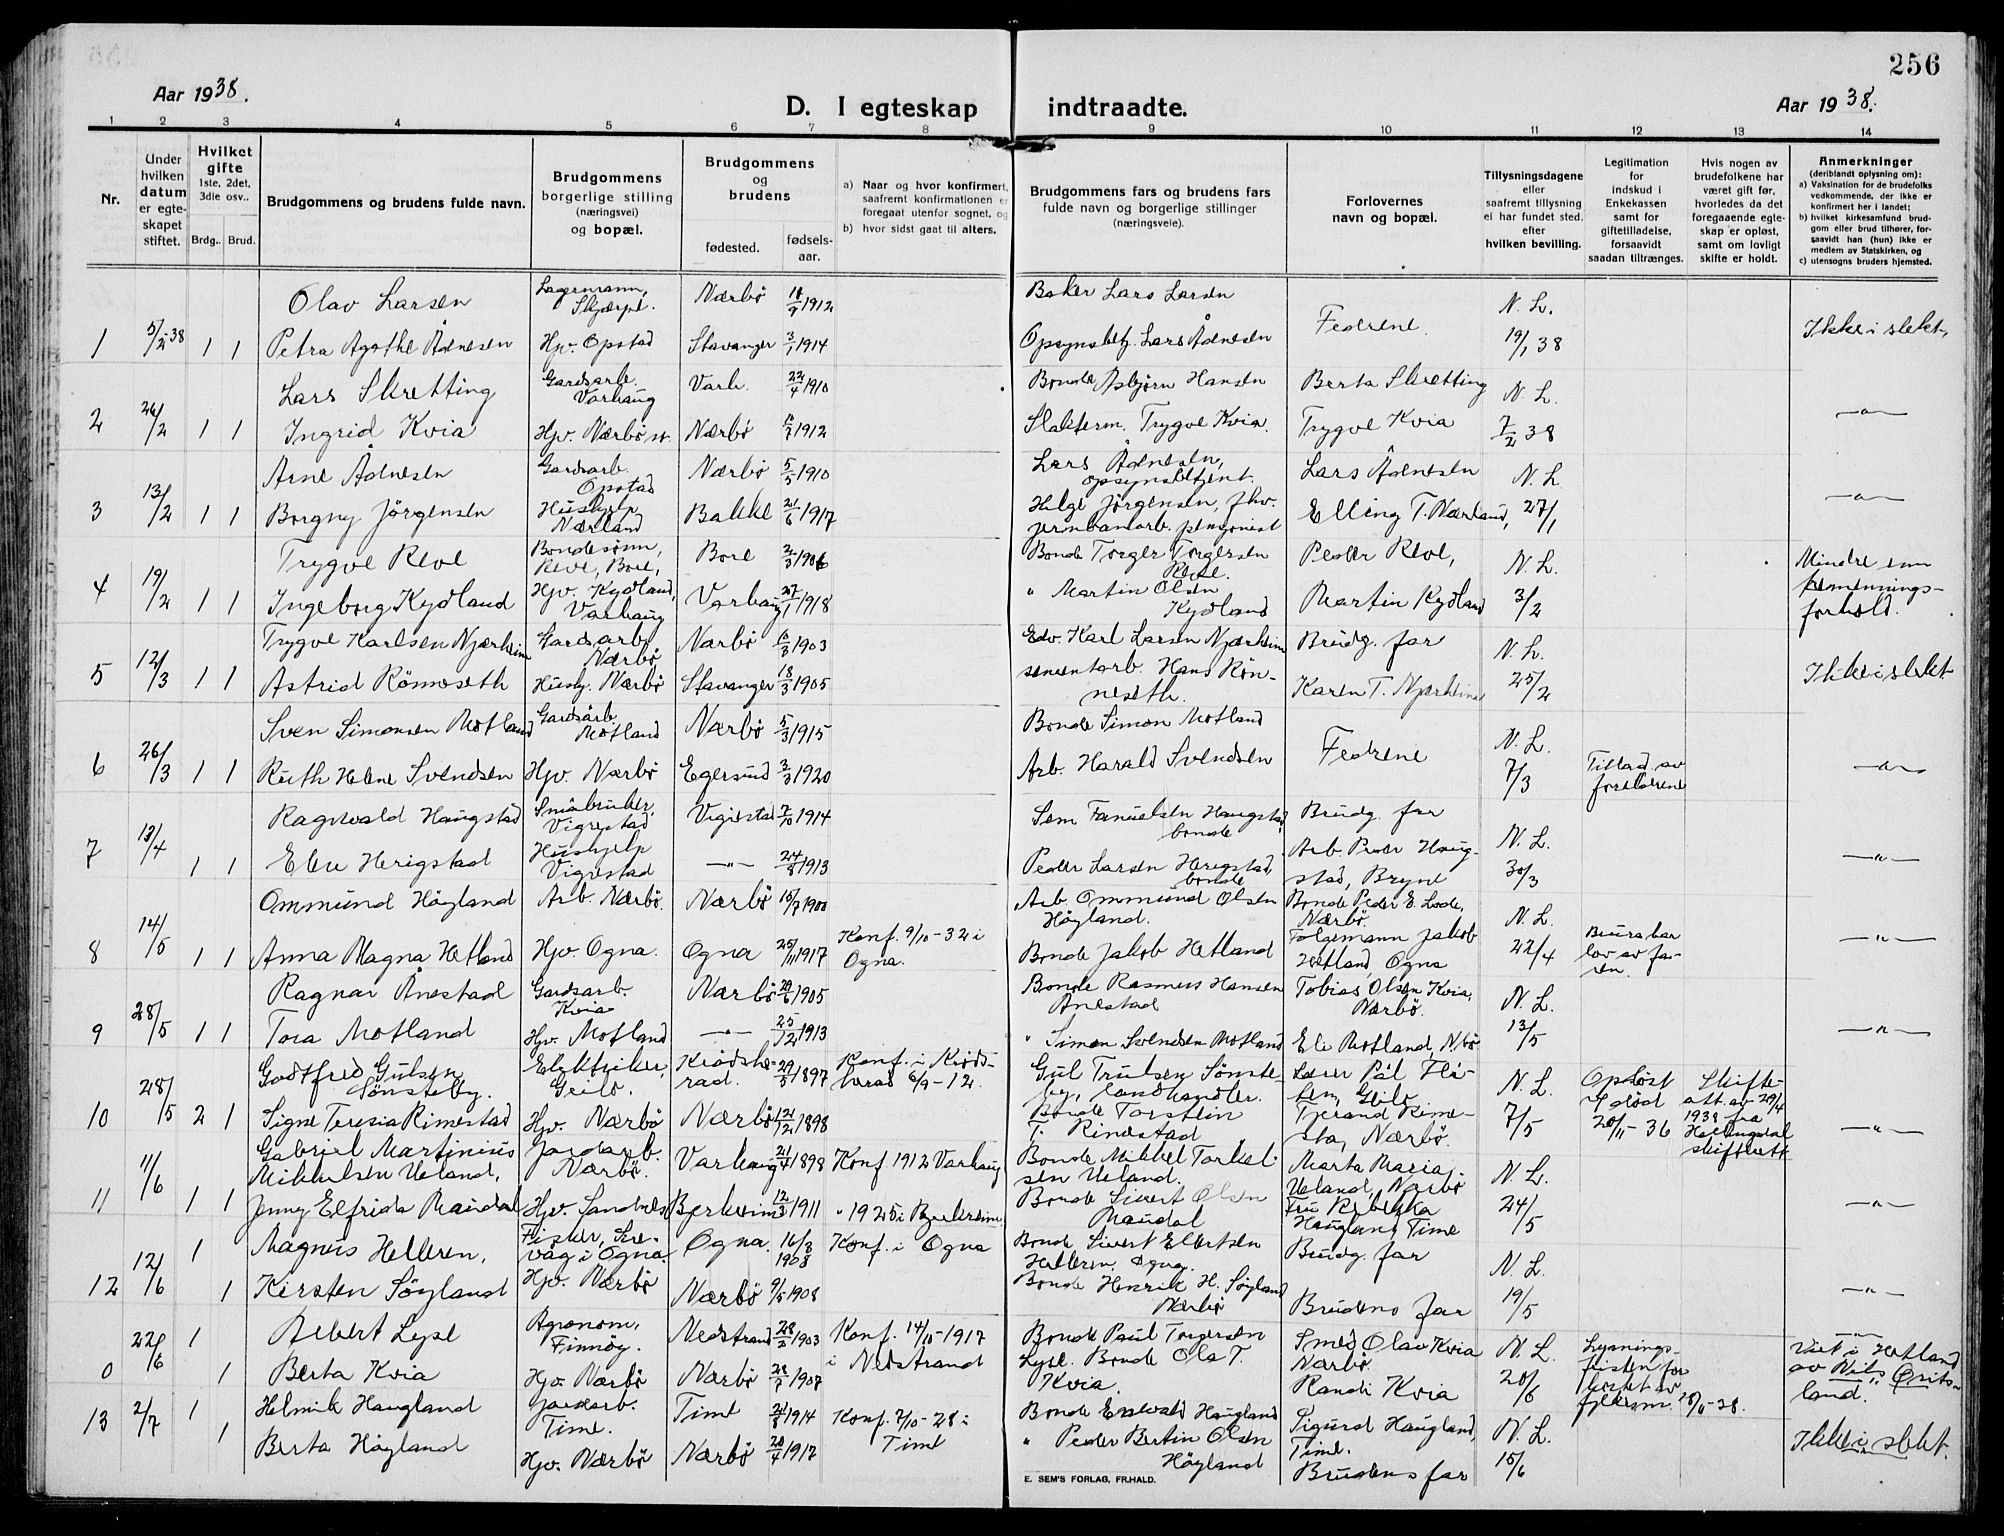 256
Aar 1938.
D. I egteskap indtraadte.
Aar 1938.
1 2 3 4 5 6 7 8 9 10 11 12 13 14
Nr.
Under hvilken datum er egteskapet stiftet.
Hvilket gifte 1ste, 2det, 3die osv..
Brdg.. Brud.
Brudgommens og brudens fulde navn.
Brudgommens borgerlige stilling (næringsvei) og bopæl.
Brudgommens og brudens
fødested. fødsels-aar.
a) Naar og hvor konfirmert, saafremt konfirmationen er foregaat utenfor sognet, og
b) hvor sidst gaat til alters.
Brudgommens fars og brudens fars fulde navn og borgerlige stillinger (næringsveie).
Forlovernes navn og bopæl.
Tillysningsdagene eller saafremt tillysning ei har fundet sted. efter hvilken bevilling.
Legitimation for indskud i Enkekassen samt for giftetilladelse, forsaavidt saadan tiltrænges.
Hvis nogen av brudefolkene har været gift før, hvorledes da det foregaaende egteskap er opløst, samt om lovligt skifte er holdt.
Anmerkninger (deriblandt oplysning om):
a) Vaksination for de brudefolks vedkommende, der ikke er konfirmert her i landet;
b) hvilket kirkesamfund brudgom eller brud tilhører, forsaavidt han (hun) ikke er medlem av Statskirken, og
c) utensogns bruders hjemsted.
Olav Larsen Lagermann, Nærbö 1912 Baker Lars Larsen N. L.
1 5/2-38 1 1 Petra Agathe Ådnesen Hjv. Opstad Stavanger 3/1 1914 Opsynsbetj. Lars Ådnesen Fedrene. 19/1 38 Ikke i slekt,
Lars Skretting Gardsarb. Varhaug Varh. 22/4 1910 Bonde Asbjørn Hansen Berta Skretting N. L.
2 26/2 1 1 Ingrid Kvia Hjv. Nærbö st. Nærbö 1912 Slakterm. Trygve Kvia. Trygve Kvia 7/2 38 —"—
Arne Ådnesen Gardsarb. Opstad Nærbö 5/5 1910 Lars Ådnesen, opsynsbetjent. Lars Ådnesen N. L.
3 13/2 1 1 Borgny Jörgensen Hushjelp Nærland Bakke 21/6 1917 Helge Jörgensen, fhv. jernbanearb. pensjonist Elling T. Nærland, 27/1 —"—
Trygve Reve Bondesönn, Reve, Bore, Bore 2/3 1906 Bonde Torger Torgersen Reve. Peder Reve, N. L. Mindre enn
4 19/2 1 1 Ingeborg Kydland Hjv. Kydland, Varhaug Varhaug 27/1 1918 " Martin Olsen Kydland Martin Kydland 3/2 forhold.
Trygve Karlsen Njærheim Gardsarb. Nærbö Nærbö 1903 Karl Larsen Njærheim Brudg. far N. L.
5 12/3 1 1 Astrid Rönneseth Hushj. Nærbö Stavanger 18/3 1905 sementarb. Hans Rönneseth. Karen T. Njærheim 25/2 Ikke i slekt
Sven Simonsen Motland Gardsarb. Motland Nærbö 5/3 1915 Bonde Simon Motland N. L.
6 26/3 1 1 Ruth Helene Svendsen Hjv. Nærbö Egersund 3/3 1920 Arb. Harald Svendsen Fedrene 7/3 Tillad. av foreldrene —"—
Ragnvald Haugstad Småbruker, Vigrestad Vigrestad 7/10 1914 Sem Fanuelsen Haugstad bonde Brudg. far N. L.
7 13/4 1 1 Eli Herigstad Hushjelp Vigrestad —"— 1913 Peder Larsen Herigstad, bonde Arb. Peder Haugstad, Bryne 30/3 —"—
Ommund Höyland Arb. Nærbö. Nærbö 15/7 1900 Arb. Ommund Olsen Höyland. Bonde Peder E. Lode, Nærbö. N. L.
8 14/5 1 1 Anna Magna Hetland Hjv. Ogna. Ogna 25/11 1917 Konf. 9/10-32 i Ogna. Bonde Jakob Hetland Jakob Hetland, Ogna 22/4 Brura har lov av faren. —"—
Ragnar Ånestad Gardsarb. Kvia Nærbö 1905 Bonde Rasmus Hansen Anestad Tobias Olsen Kvia, Nærbö. N. L.
9 28/5 1 1 Tora Motland Hjv. Motland —"— 25/12 1913 " Simon Svendsen Motland Eli Motland, N.bö 13/5 —"—
Godtfred Gulsen Sönsteby. Elektriker, Geilo. Krödsherad. 29/5 1897 Konf. i Krödsherad 6/9-12. Gul Trulsen Sönsteby, landhandler. Lærer Pål N. L. Oplöst v. död 20/11-36 Skifteatt. av 29/4 1938 fra Hallingdal skifterett
10 28/5 2 1 Signe Teresia Rimestad Hjv. Nærbö Nærbö 1898 Bonde Torstein T. Rimestad Tjerand Rimesta, Nærbö. 7/5 —"—
Gabriel Martinius Mikkelsen Ueland, Nærbö. Varhaug 21/4 1898 Konf 1912 Varhaug Bonde Mikkel Torkelsen Ueland. Marta Maria Ueland, Nærbö N. L.
11 11/6 1 1 Jenny Elfrida Maudal Hjv. Sandnes Bjerkreim 12/3 1911 " 1925 i Bjerkreim Bonde Sivert Olsen Maudal Fru Rebekka Haugland Time 24/5 —"—
Magnus Helleren, Fisker, Sirevåg i Ogna. Ogna. 16/8 1908 Konf. i Ogna Bonde Sivert Ellertsen Helleren, Ogna. Brudg. far N. L.
12 12/6 1 1 Kirsten Söyland Hjv. Nærbö Nærbö 9/5 1908 Bonde Henrik H. Söyland Nærbö Brudens far 19/5 —"—
Lyse Agronom, Finnöy. Nedstrand 28/2 1903 Konf. 14/10-1917 i Nedstrand Bonde Paul Torgersen Lyse. Smed Olav Kvia Nærbö. N. L. Lysningsfristen —"—
0 22/6 1 1 Berta Kvia Hjv. Nærbö Nærbö 28/7 1907 Bonde Ola T. Kvia. Randi Kvia 20/6 Viet i Hetland av Nils
Helmik Haugland Gardsarb. Time. Time 1914 Konf. 7/10-28 i Time Bonde Haugland Sigurd Haugland, Time. N. L.
13 2/7 1 1 Berta Höyland Hjv. Nærbö Nærbö 20/4 1917 " Peder Bertin Olsen Höyland Brudens far 15/6 Ikke i slekt.
E. SEM'S FORLAG, FR.HALD.